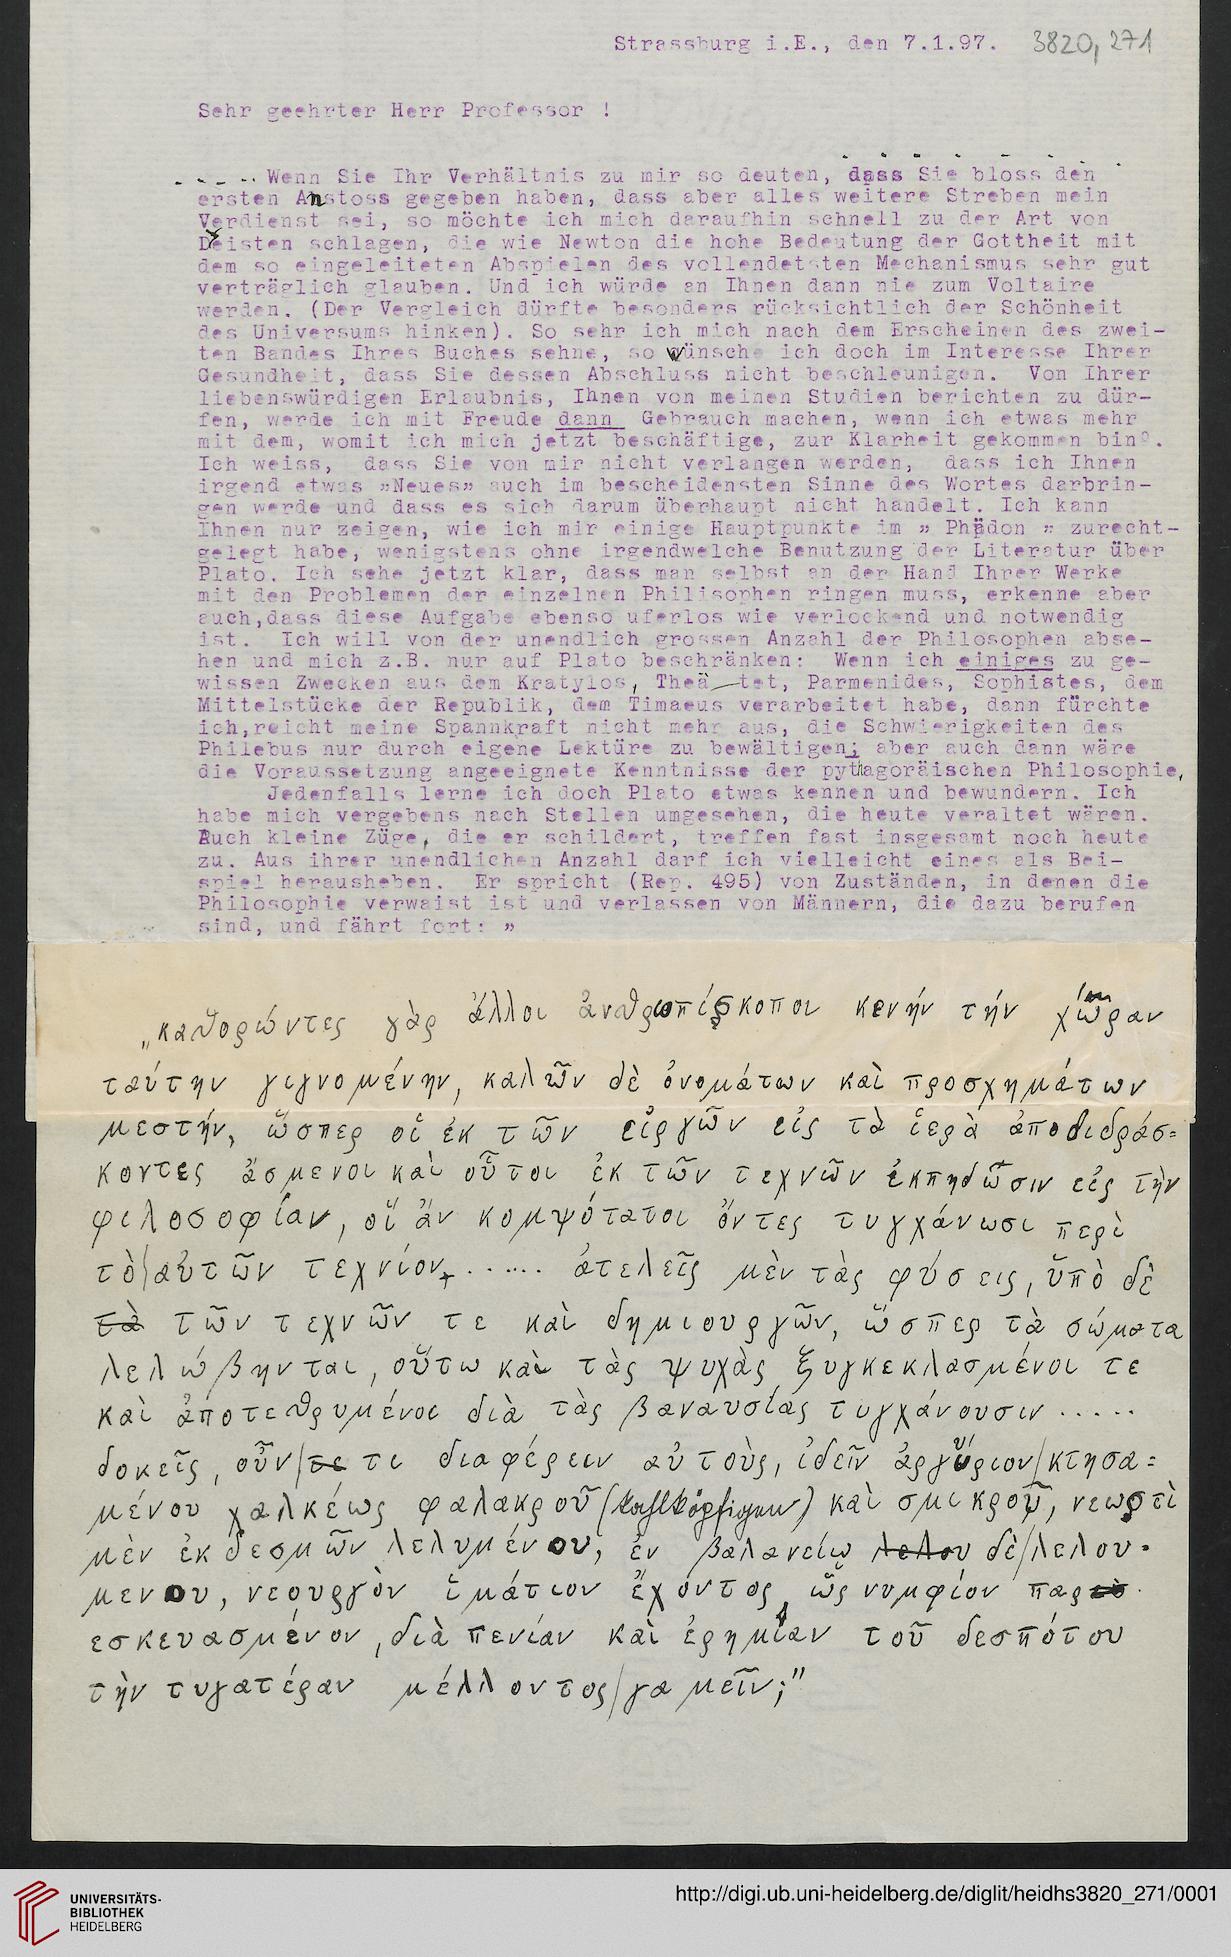 Strassburg i.E., den 7.1.97. 3820, 271
Sehr geehrter Herr Professor !
Wenn Sie Ihr Verhältnis zu mir so deuten, dass Sie bloss den
ersten Anstoss gegeben haben, dass aber alles weitere Streben mein
Verdienst sei, so möchte ich mich daraufhin schnell zu der Art von
Deisten schlagen, die wie Newton die hohe Bedeutung der Gottheit mit
dem so eingeleiteten Abspielen des vollendetsten Mechanismus sehr gut
verträglich glauben. Und ich würde an Ihnen dann nie zum Voltaire
werden. (Der Vergleich dürfte besonders rücksichtlich der Schönheit
des Universums hinken). So sehr ich mich nach dem Erscheinen des zwei-
ten Bandes Ihres Buches sehne, so wünsche ich doch im Interesse Ihrer
Gesundheit, dass Sie dessen Abschluss nicht beschleunigen. Von Ihrer
liebenswürdigen Erlaubnis, Ihnen von meinen Studien berichten zu dür-
fen, werde ich mit Freude dann Gebrauch machen, wenn ich etwas mehr
mit dem, womit ich mich jetzt beschäftige, zur Klarheit gekommen bin.
Ich weiss, dass Sie von mir nicht verlangen werden, dass ich Ihnen
irgend etwas »Neues» auch im bescheidensten Sinne des Wortes darbrin-
gen werde und dass es sich darum überhaupt nicht handelt. Ich kann
Ihnen nur zeigen, wie ich mir einige Hauptpunkte im » Phädon » zurecht-
gelegt habe, wenigstens ohne irgendwelche Benutzung der Literatur über
Plato. Ich sehe jetzt klar, dass man selbst an der Hand Ihrer Werke
mit den Problemen der einzelnen Philisophen ringen muss, erkenne aber
auch,dass diese Aufgabe ebenso uferlos wie verlockend und notwendig
ist. Ich will von der unendlich grossen Anzahl der Philosophen abse-
hen und mich z.B. nur auf Plato beschränken: Wenn ich einiges zu ge-
wissen Zwecken aus dem Kratylos, Theä tet, Parmenides, Sophistes, dem
Mittelstücke der Republik, dem Timaeus verarbeitet habe, dann fürchte
ich,reicht meine Spannkraft nicht mehr aus, die Schwierigkeiten des
Philebus nur durch eigene Lektüre zu bewältigen; aber auch dann wäre
die Voraussetzung angeeignete Kenntnisse der pythagoräischen Philosophie,
Jedenfalls lerne ich doch Plato etwas kennen und bewundern. Ich
habe mich vergebens nach Stellen umgesehen, die heute veraltet wären.
Auch kleine Züge, die er schildert, treffen fast insgesamt noch heute
zu. Aus ihrer unendlichen Anzahl darf ich vielleicht eines als Bei-
spiel herausheben. Er spricht (Rep. 495) von Zuständen, in denen die
Philosophie verwaist ist und verlassen von Männern, die dazu berufen
sind, und fährt fort: »
„καθορώντες γὰρ ἄλλοι ἀνθρωπίσκοποι κενήν τήν χώραν
ταύτην γιγνομένην, καλῶν δὲ ὀνομάτων καὶ προσχημάτων
μεστήν, ὥσπερ οἱ ἐκ τῶν εἰργῶν εἰς τὰ ἱερὰ ἀποδιδράσ=
κοντες ἄσμενοι καὶ οὗτοι ἐκ τῶν τεχνῶν ἐκπηδῶσιν εἰς τὴν
φιλοσοφίαν, οἵ ἂν κομψότατοι ὄντες τυγχάνωσι περὶ
τὸ|αὑτῶν τεχνίον, ...... ἀτελεῖς μὲν τὰς φύσεις, ὑπὸ δὲ
τὰ τῶν τεχνῶν τε καὶ δημιουργῶν, ὥσπερ τὰ σώματα
λελώβηνται, οὕτω καὶ τὰς ψυχὰς ξυγκεκλασμένοι τε
καὶ ἀποτεθρυμένοι διὰ τὰς βαναυσίας τυγχάνουσιν .....
δοκεῖς, οὖν|τε τι διαφέρειν αὐτοὺς, ἰδεῖν ἀργύριον|κτησα=
μένου χαλκέως φαλακροῦ (kahlköpfigen) καὶ σμικροῦ, νεωστὶ
μὲν ἐκ δεσμῶν λελυμένου, ἐν βαλανείῳ λελου δὲ|λελου-
μενου, νεουργὸν ἱμάτιον ἔχοντος, ὡς νυμφίον παρ
εσκευασμένον, διὰ πενίαν καὶ ἐρημίαν τοῦ δεσπότου
τὴν τυγατέραν μέλλοντος|γαμεῖν;"
UNIVERSITÄTS-
BIBLIOTHEK
HEIDELBERG
http://digi.ub.uni-heidelberg.de/diglit/heidhs3820_271/0001